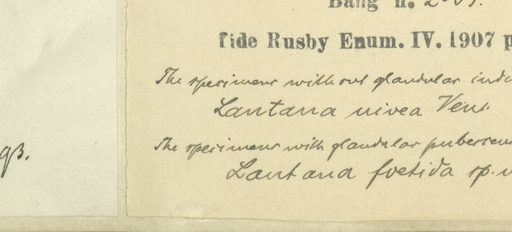 Bang n.
fide Rusby Enum. IV. 1907 p
The specimens without glandular indu
Lantana nivea Vent.
The specimens with glandular pubescen
Lantana foetida sp. n